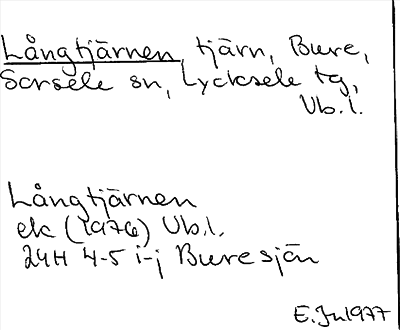 Långtjärnen, tjärn, Bure,
Sorsele sn, Lycksele tg,
Vb.l.
Långtjärnen
ek (1976) Vb.l.
24H 4-5 i-j Buresjön
E.Jn1977